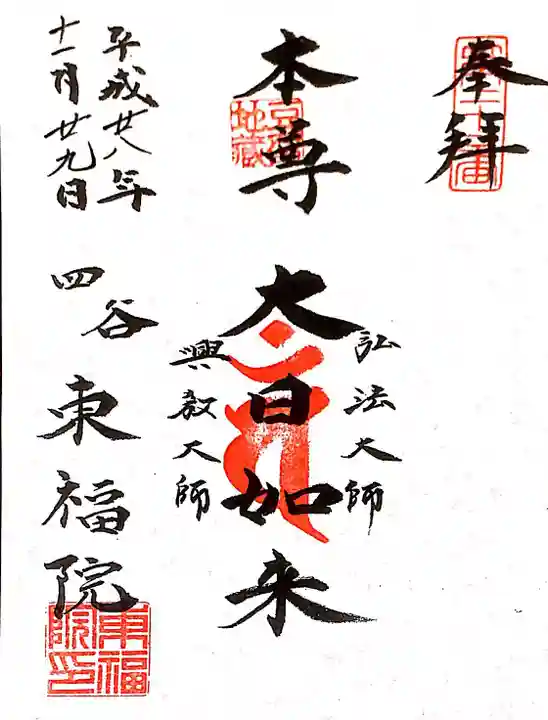 奉拜
本尊
弘法大師
大日如来
興教大師
平成廿八年
十一月廿九日
四谷
東福院
豆腐地蔵
東福院印